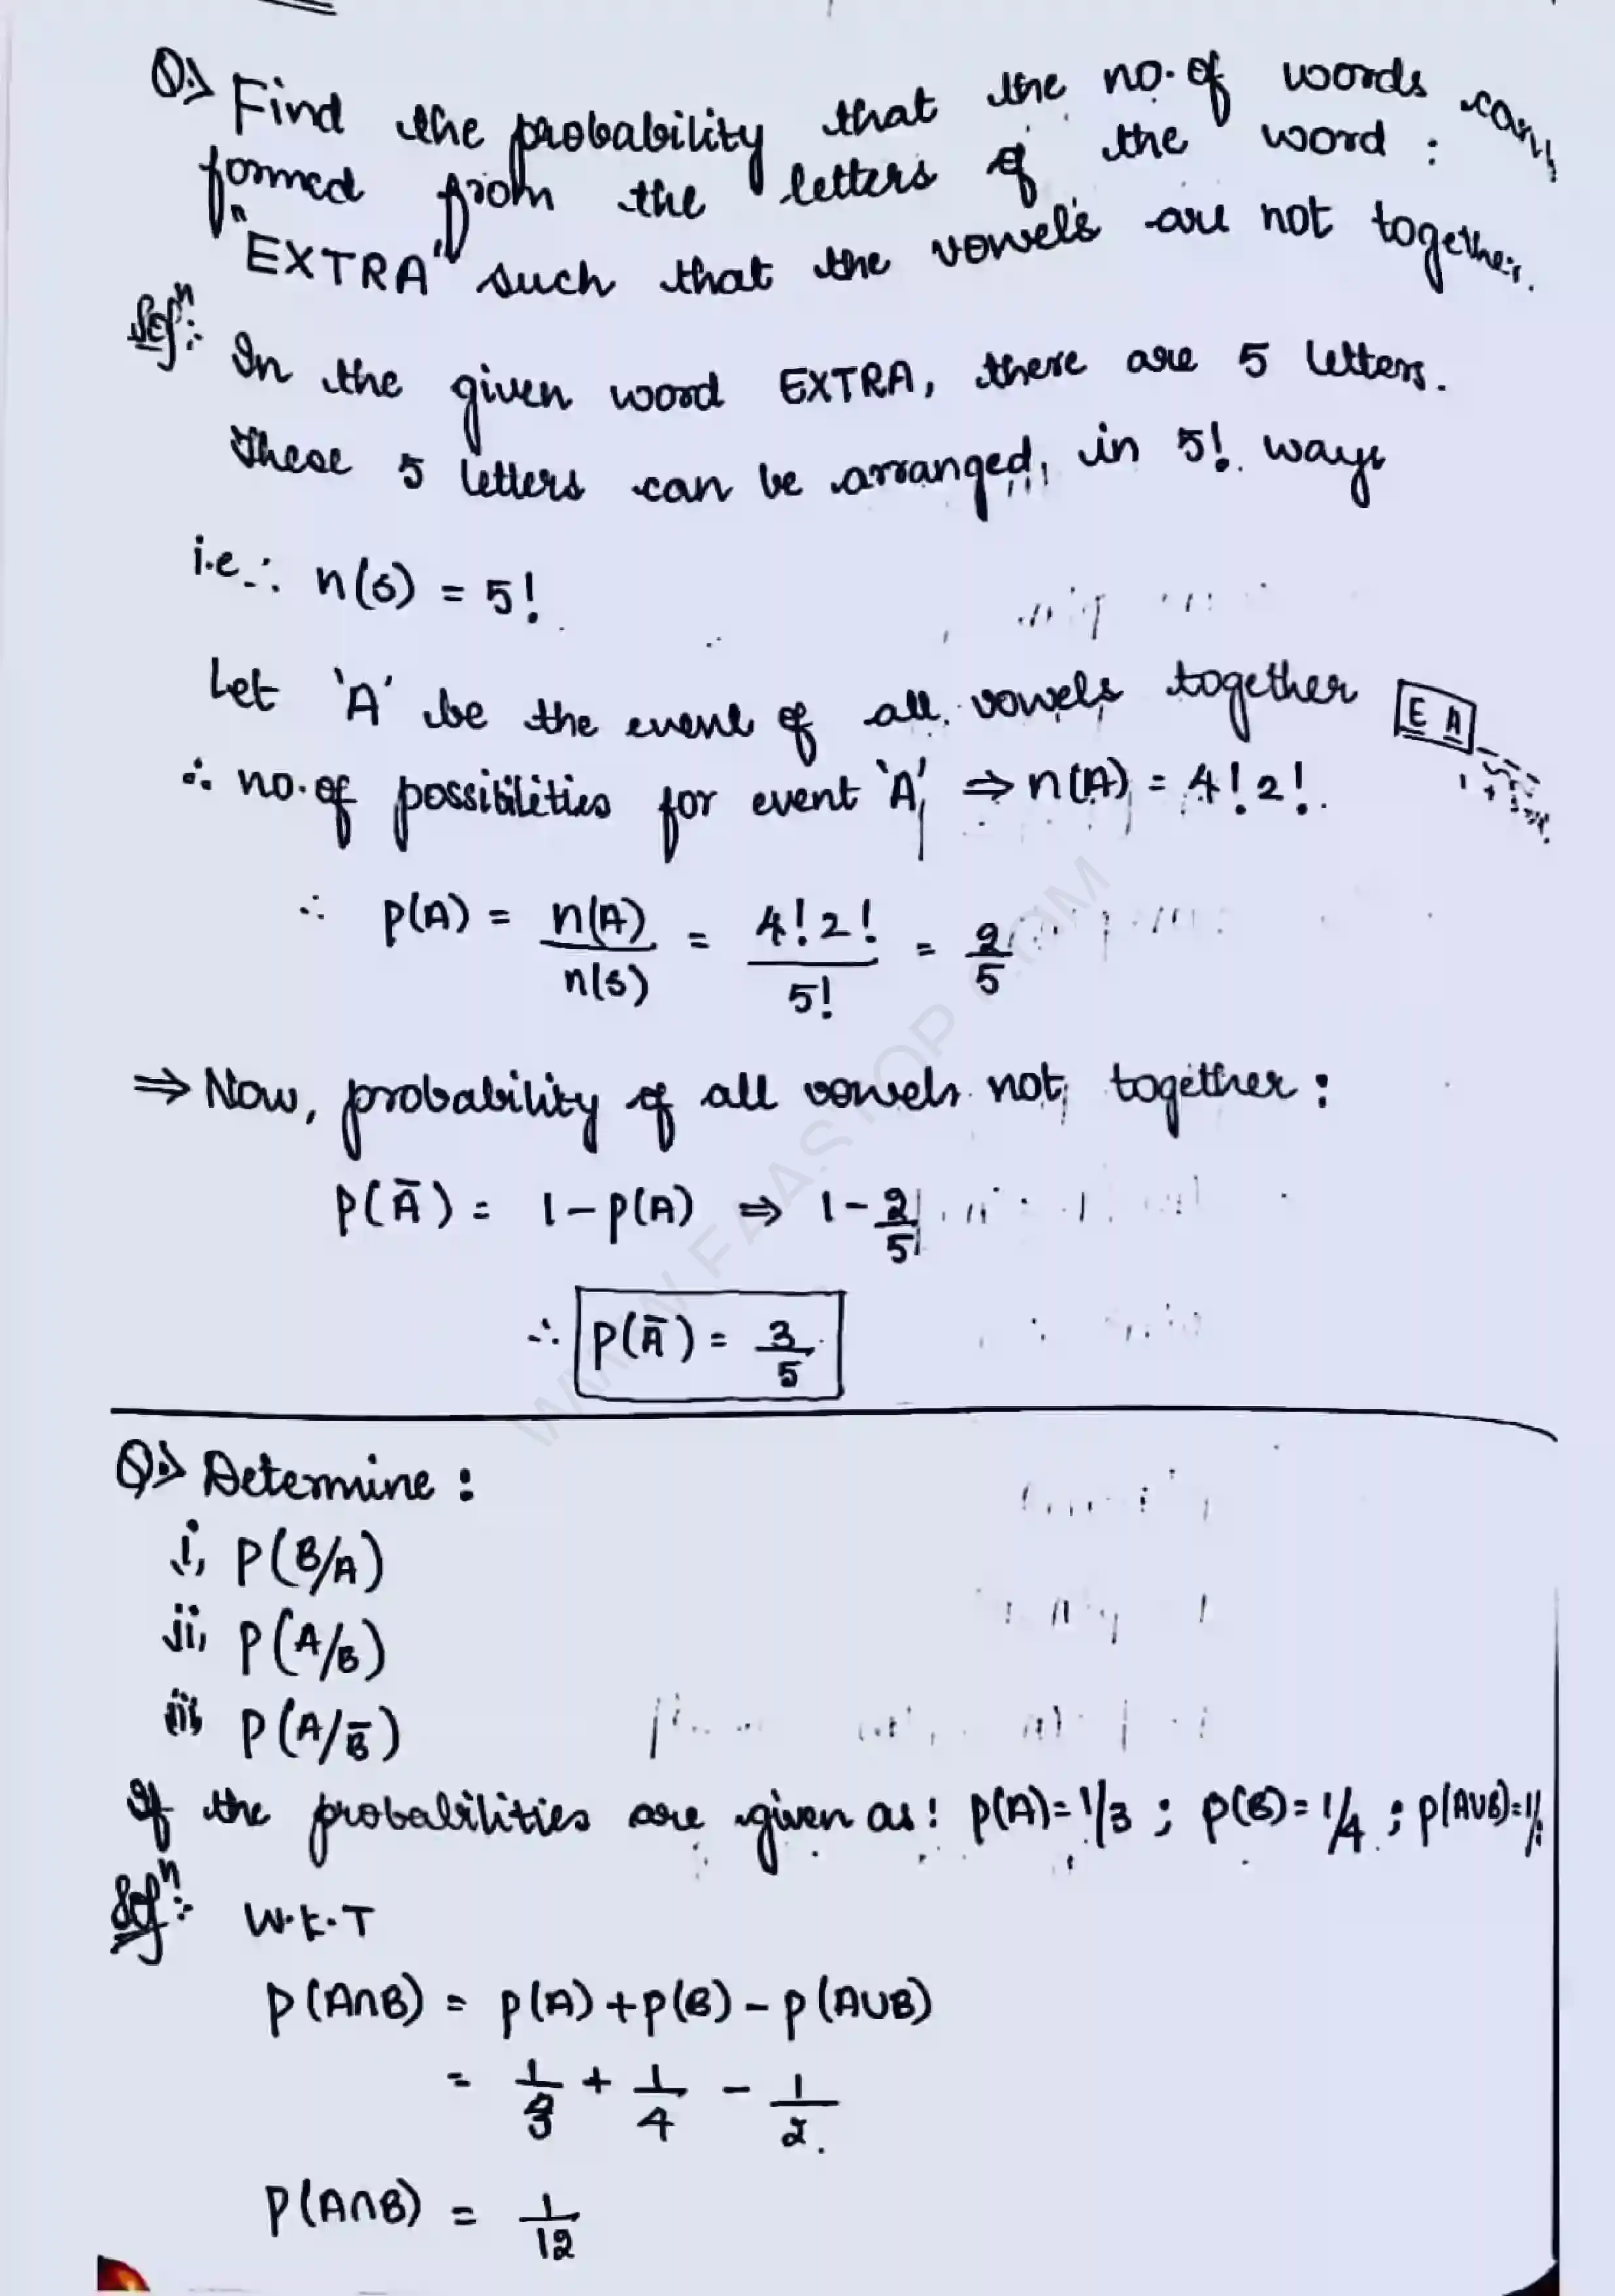 Q.> Find the probability that the no. of words can
formed from the letters of the word :
"EXTRA" such that the vowels are not together.
Solⁿ:- In the given word EXTRA, there are 5 letters.
These 5 letters can be arranged, in 5! ways
i.e ∴ n(S) = 5!
Let 'A' be the event of all vowels together E A
∴ no. of possibilities for event 'A' ⇒ n(A) = 4! 2!.
∴ P(A) = n(A)/n(S) = 4! 2!/5! = 2/5
⇒ Now, probability of all vowels not together :
P(Ā) = 1 - P(A) ⇒ 1 - 2/5
∴ P(Ā) = 3/5
Q.> Determine :
i, P(B/A)
ii, P(A/B)
iii, P(A/B̄)
If the probabilities are given as: P(A)=1/3 ; P(B)=1/4 ; P(A∪B)=1/
Solⁿ:- W.K.T
P(A∩B) = P(A) + P(B) - P(A∪B)
= 1/3 + 1/4 - 1/2.
P(A∩B) = 1/12
WWW.FAASTOP.COM